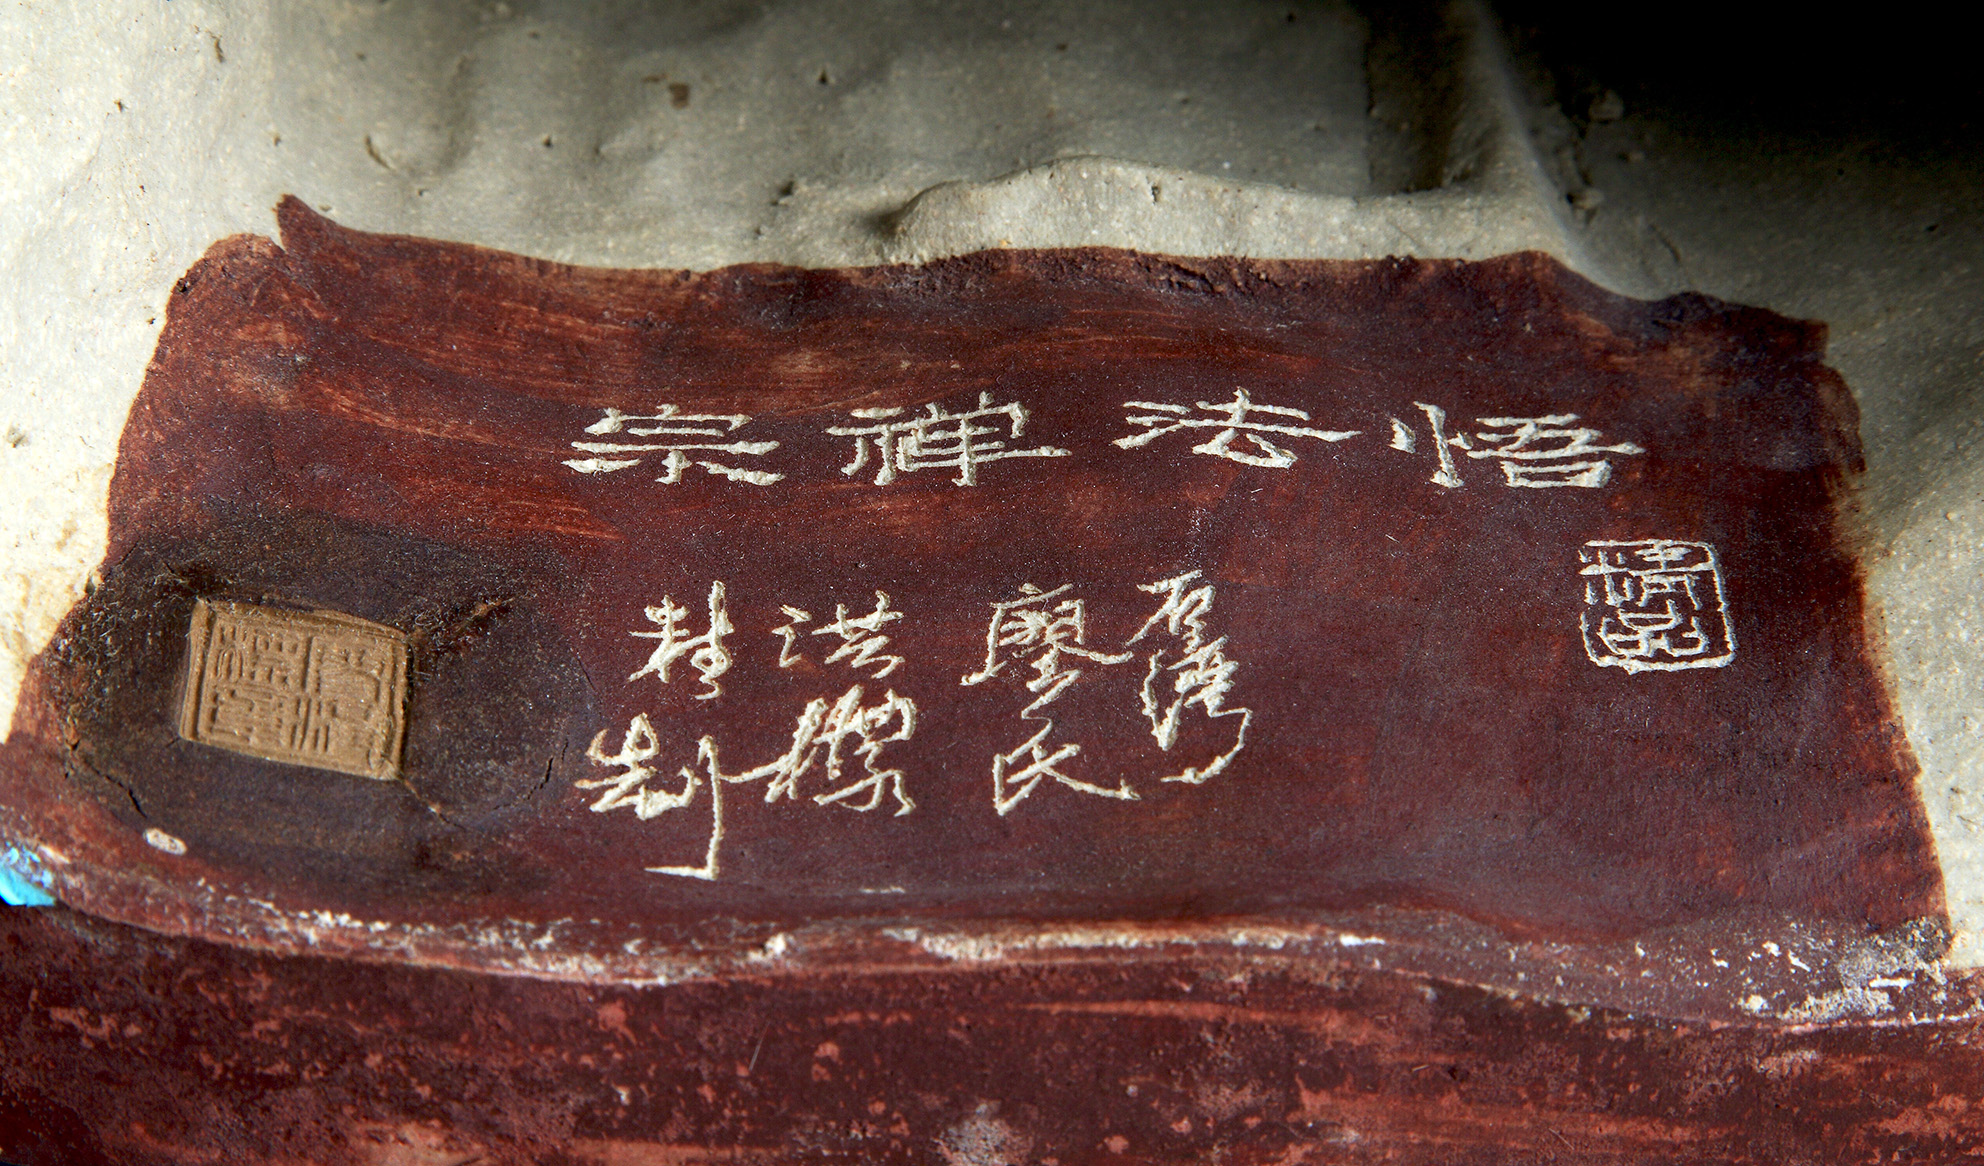 悟法禪宗
石灣
廖氏
洪標
精制